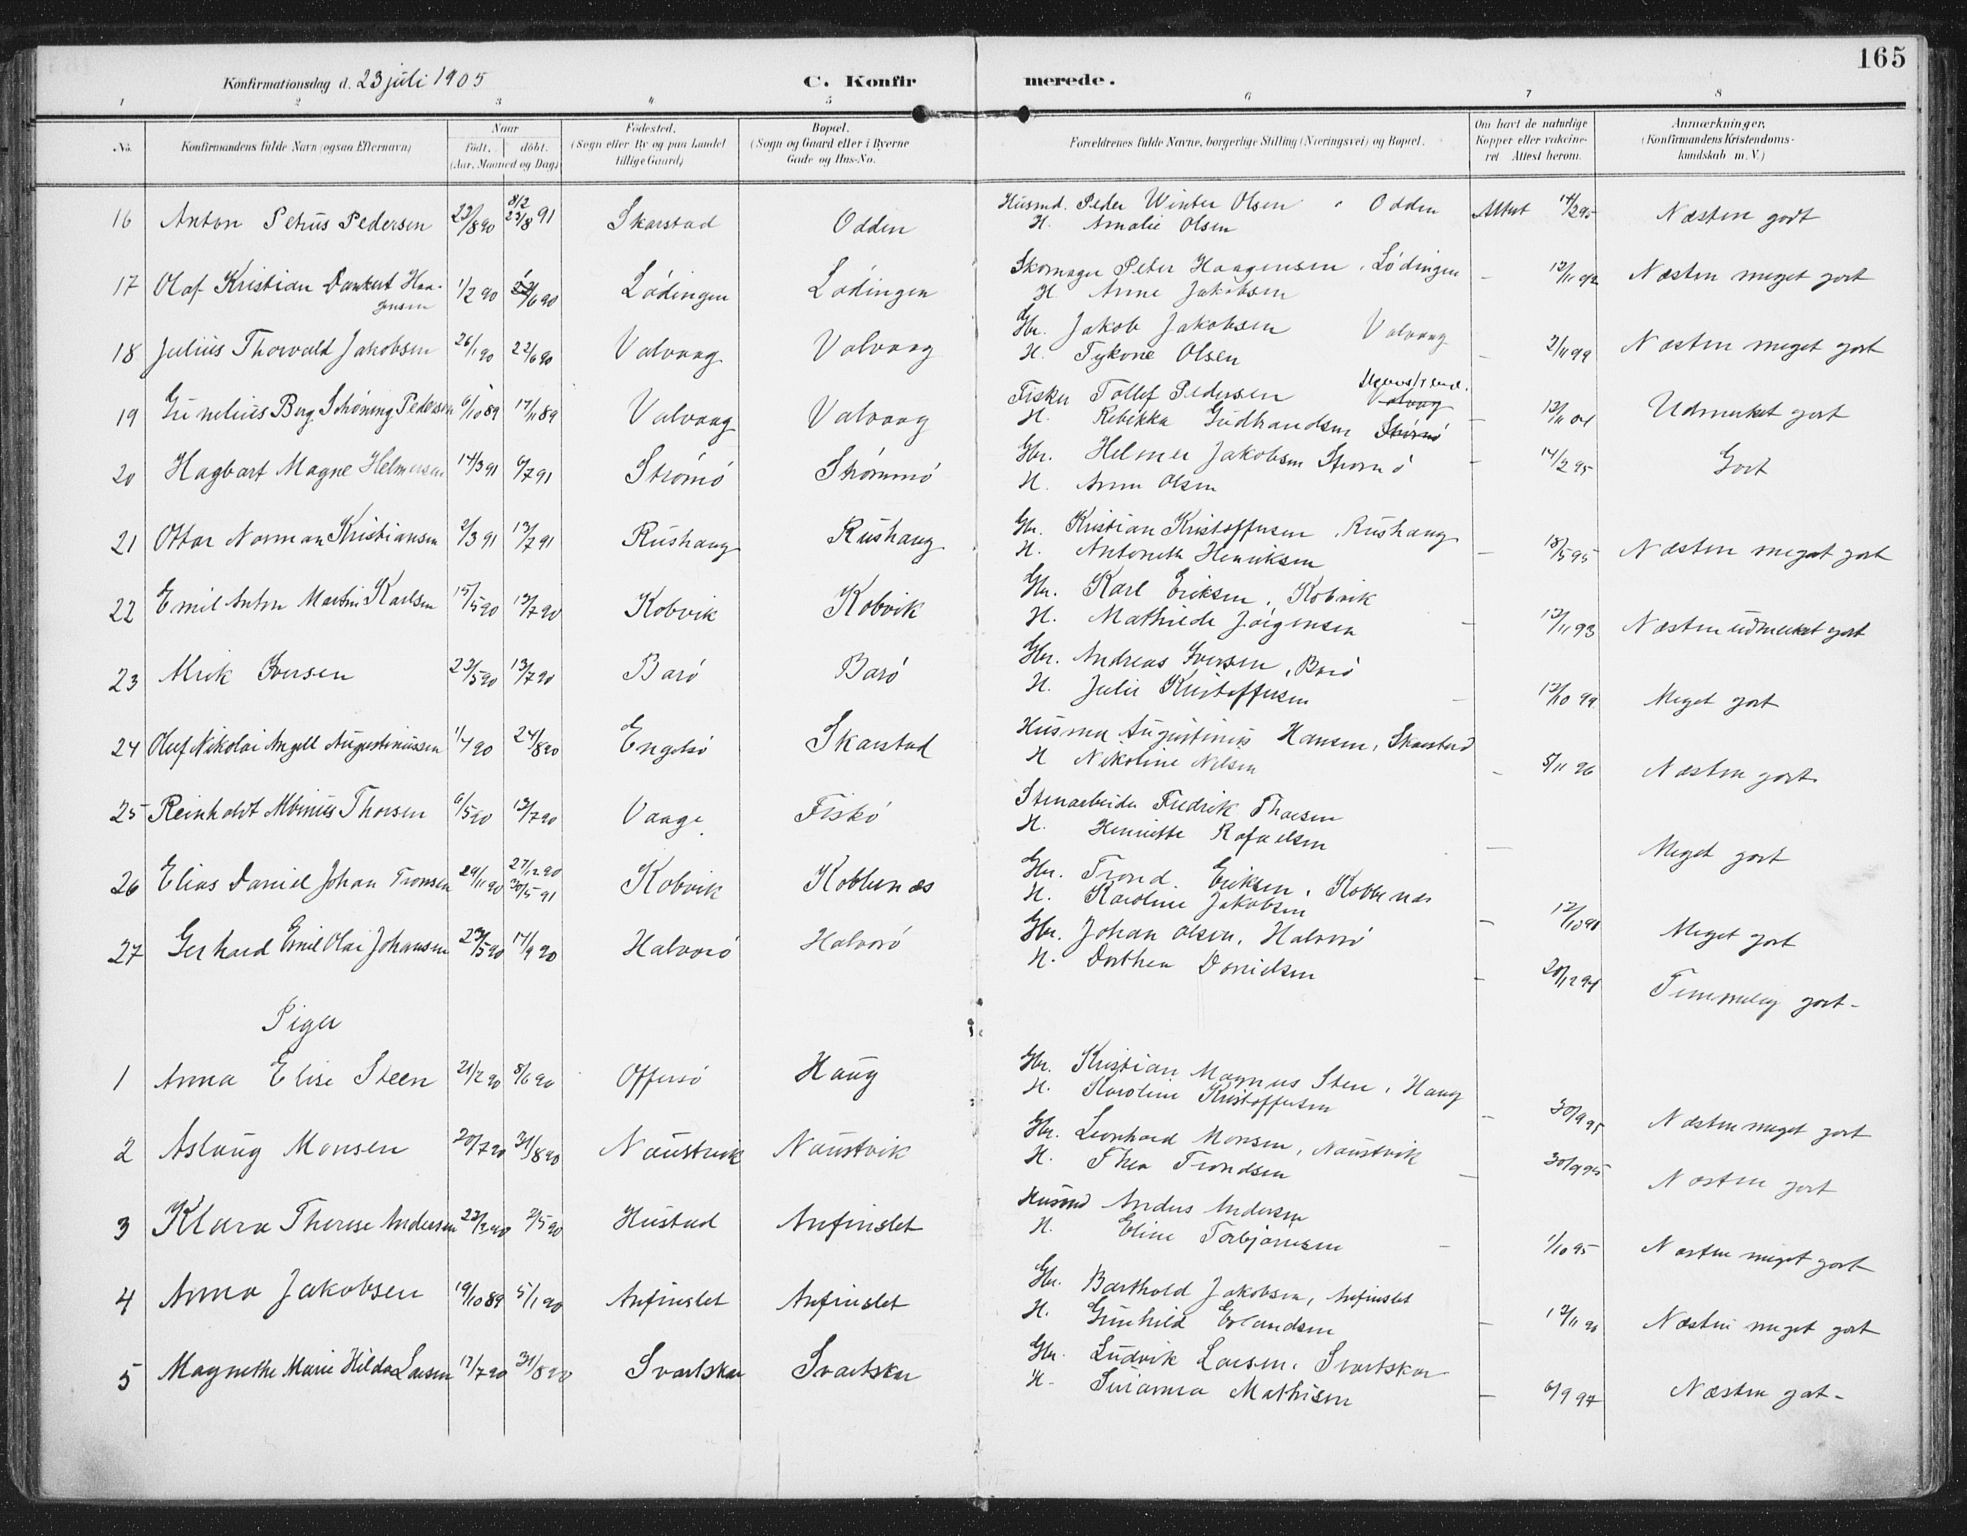 165
Konfirmationsdag d. 23 juli 1905 C. Konfirmerede.
1 2 3 4 5 6 7 8
No. Konfirmandens fulde Navn (ogsaa Efternavn) Naar født, døbt. (Aar, Maaned og Dag) Fødested. (Sogn eller By og paa Landet tillige Gaard) Bopæl. (Sogn og Gaard eller i Byerne Gade og Hus-No. Forældrenes fulde Navne, borgerlige Stilling (Næringsvei) og Bopæl. Om havt de naturlige Kopper eller vakcineret Attest herom. Anmærkninger. (Konfirmandens Kristendomskundskab m. V.)
16 Anton Petrus Pedersen 23/8 90 8/2 91 23/8 Skarstad Odden Husmd. Peder Winter Olsen Odden Attest 14/2 95 Næsten godt
H. Amalie Olsen
17 Olaf Kristian Dankert Haagensen 1/2 90 /6 90 Lødingen Lødingen Skomager Peter Haagensen, Lødingen - 12/11 92 Næsten meget godt
H. Anne Jakobsen
18 Julius Thorvald Jakobsen 26/1 90 22/6 90 Valvaag Valvaag Gbr. Jakob Jakobsen Valvaag - 2/11 99 Næsten meget godt
H. Tykone Olsen
19 Gunelius Berg Schöning Pedersen 6/10 89 17/11 89 Valvaag Valvaag Fisker Tollef Pedersen Valvag - 12/11 01 Udmerket godt
H. Rebikka Gudbrandsen
20 Hagbart Magne Helmersen 14/3 91 6/7 91 Strømø Strømmø Gbr. Helmer Jakobsen Strømø - 14/2 95 Godt
H. Anna Olsen
21 Ottar Norman Kristiansen 2/3 91 12/7 91 Rushaug Rushaug Gbr. Kristian Kristoffersen, Rushaug - 18/5 95 Næsten meget godt
H. Antonette Henriksen
22 Emil Anton Martin Karlsen 15/5 90 13/7 90 Kobvik Kobvik Gbr. Karl Eriksen, Kobvik - 12/11 93 Næsten udmerket godt
H. Mathilde Jörgensen
23 Alrik Iversen 23/5 90 13/7 90 Barø Barø Gbr. Andreas Iversen, Barø - 12/10 99 Meget godt
H. Julie Kristoffersen
24 Oluf Nikolai Angell Augustinussen 1/4 90 24/8 90 Engelsø Skarstad Husmd Augustinus Hansen, Skarstad - 5/11 96 Næsten godt
H Nikoline Nilsen
25 Reinholdt Albinus Thorsen 6/5 90 13/7 90 Vaage Fiskø Stenarbeider Fredrik Thorsen - Meget godt
H. Henriette Rafaelsen
26 Elias Daniel Johan Tronsen 29/11 90 27/12 90 30/5 91 Kobvik Kobbenæs Gbr. Trond Eriksen, Kobbenæs - 12/10 98 Meget godt
H. Karoline Jakobsen
27 Gerhard Emil Olai Johansen 29/5 90 14/9 90 Halvorø Halvorø Gbr. Johan Olsen, Halvorø - 20/12 94 Temmelig godt -
H. Dorthea Danielsen
Piger
1 Anna Elise Steen 21/2 90 8/6 90 Offersø Haug Gbr. Kristian Magnus Sten, Haug - 30/9 95 Næsten meget godt
H. Karoline Kristoffersen
2 Aslaug Monsen 20/7 90 31/8 90 Naustvik Naustvik Gbr. Leonhard Monsen, Naustvik - 30/9 95 Næsten godt
H. Thea Trondsen
3 Klara Therese Andersen 22/3 90 2/5 90 Hustad Anfinslet Husmd Anders Andersen - 1/10 95 Næsten meget godt
H. Eline Torbjørnsen
4 Anna Jakobsen 19/10 89 5/1 90 Anfinslet Anfinslet Gbr. Barthold Jakobsen, Anfinslet - 12/11 90 Næsten meget godt
H. Gunhild Erlandsen
5 Magnethe Marie Hilda Larsen 12/7 90 31/8 90 Svartskar Svartskar Gbr. Ludvik Larsen, Svartskar - 6/9 97 Næsten godt -
H. Susanna Mathisen